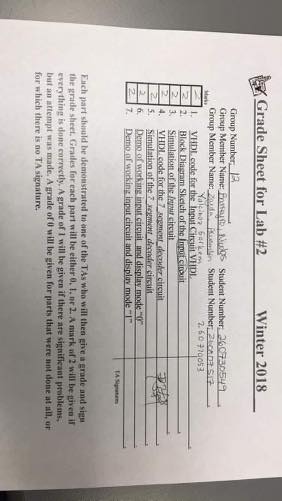 Grade Sheet for Lab #2 Winter 2018
Group Number: 12
Group Member Name: Student Number: 260730549
Group Member Name: Student Number:
Marks
2 1. VHDL code for the Input Circuit VHDL
2 2. Block Diagram Sketch of the Input circuit
2 3. Simulation of the Input circuit
2 4. VHDL code for the 7_segment_decoder circuit
2 5. Simulation of the 7_segment_decoder circuit
2 6. Demo of working input circuit and display mode "0"
2 7. Demo of working input circuit and display mode "1"
TA Signatures
Each part should be demonstrated to one of the TAs who will then give a grade and sign
the grade sheet. Grades for each part will be either 0, 1, or 2. A mark of 2 will be given if
everything is done correctly. A grade of 1 will be given if there are significant problems,
but an attempt was made. A grade of 0 will be given for parts that were not done at all, or
for which there is no TA signature.